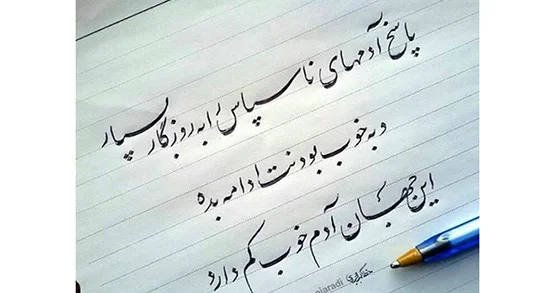 پاسخ آدمهای ناسپاس را به روزگار بسپار
و به خوب بودنت ادامه بده
این جهان آدم خوب کم دارد